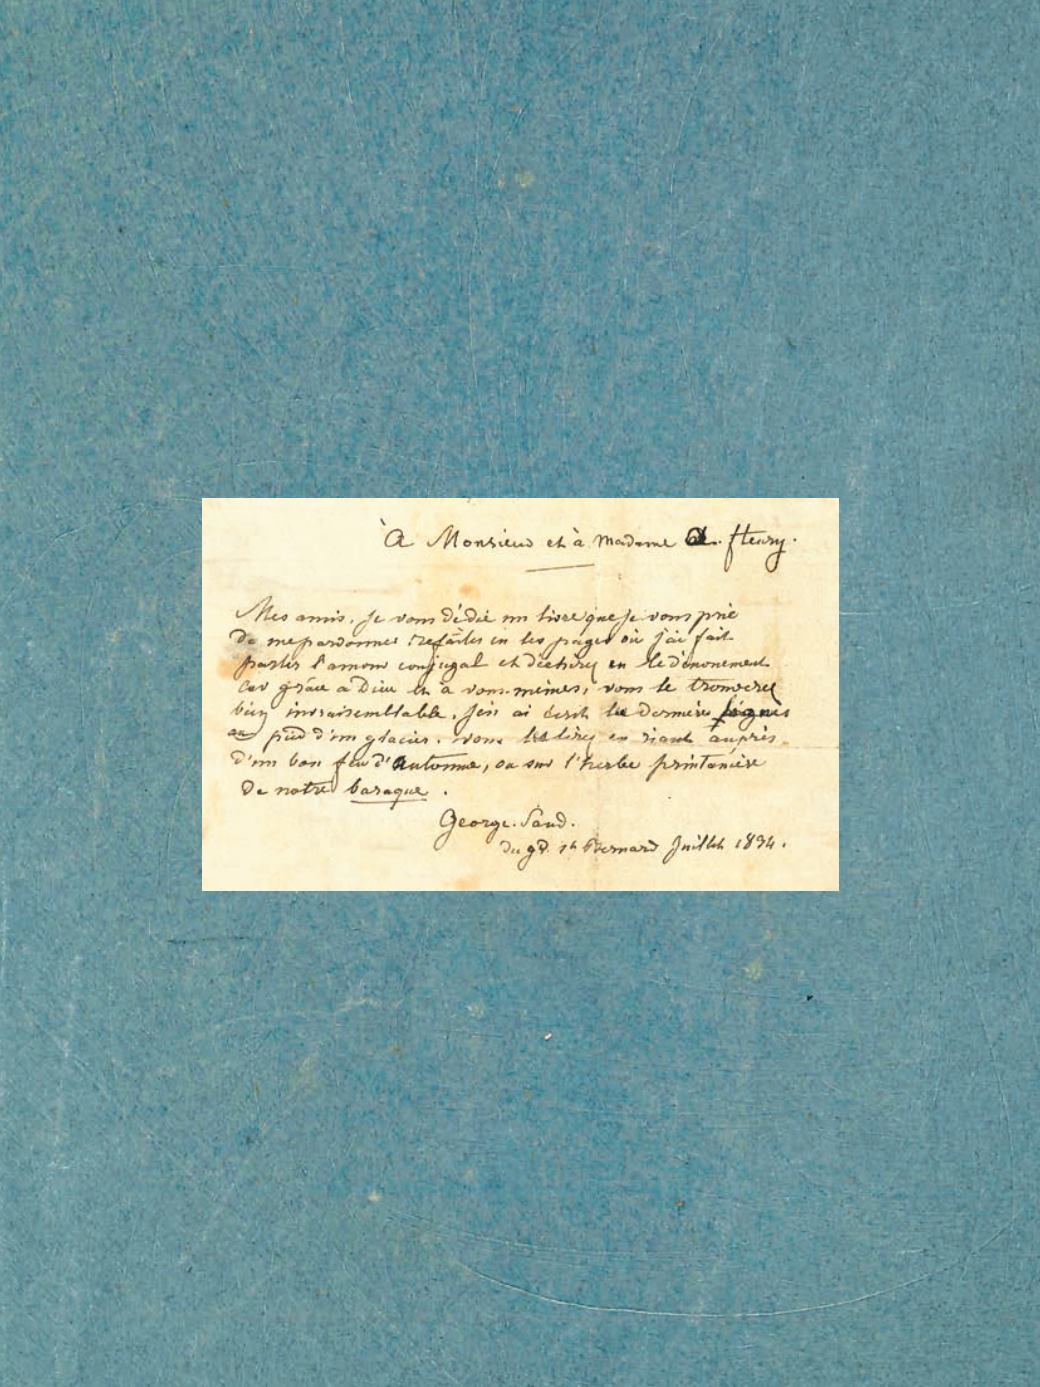 À Monsieur et à Madame A. fleury.
Mes amis, je vous dédie un livre que je vous prie
de me pardonner. Refaites en les pages où j'ai fait
parler l'amour conjugal et déchirez en le dénouement
car grâce à Dieu et à vous-mêmes, vous le trouverez
bien invraisemblable. J'en ai écrit les dernières lignes
au pied d'un glacier. vous les lirez en riant auprès
d'un bon feu d'Automne, ou sur l'herbe printanière
de notre baraque.
George. Sand.
du gd. St Bernard Juillet 1834.